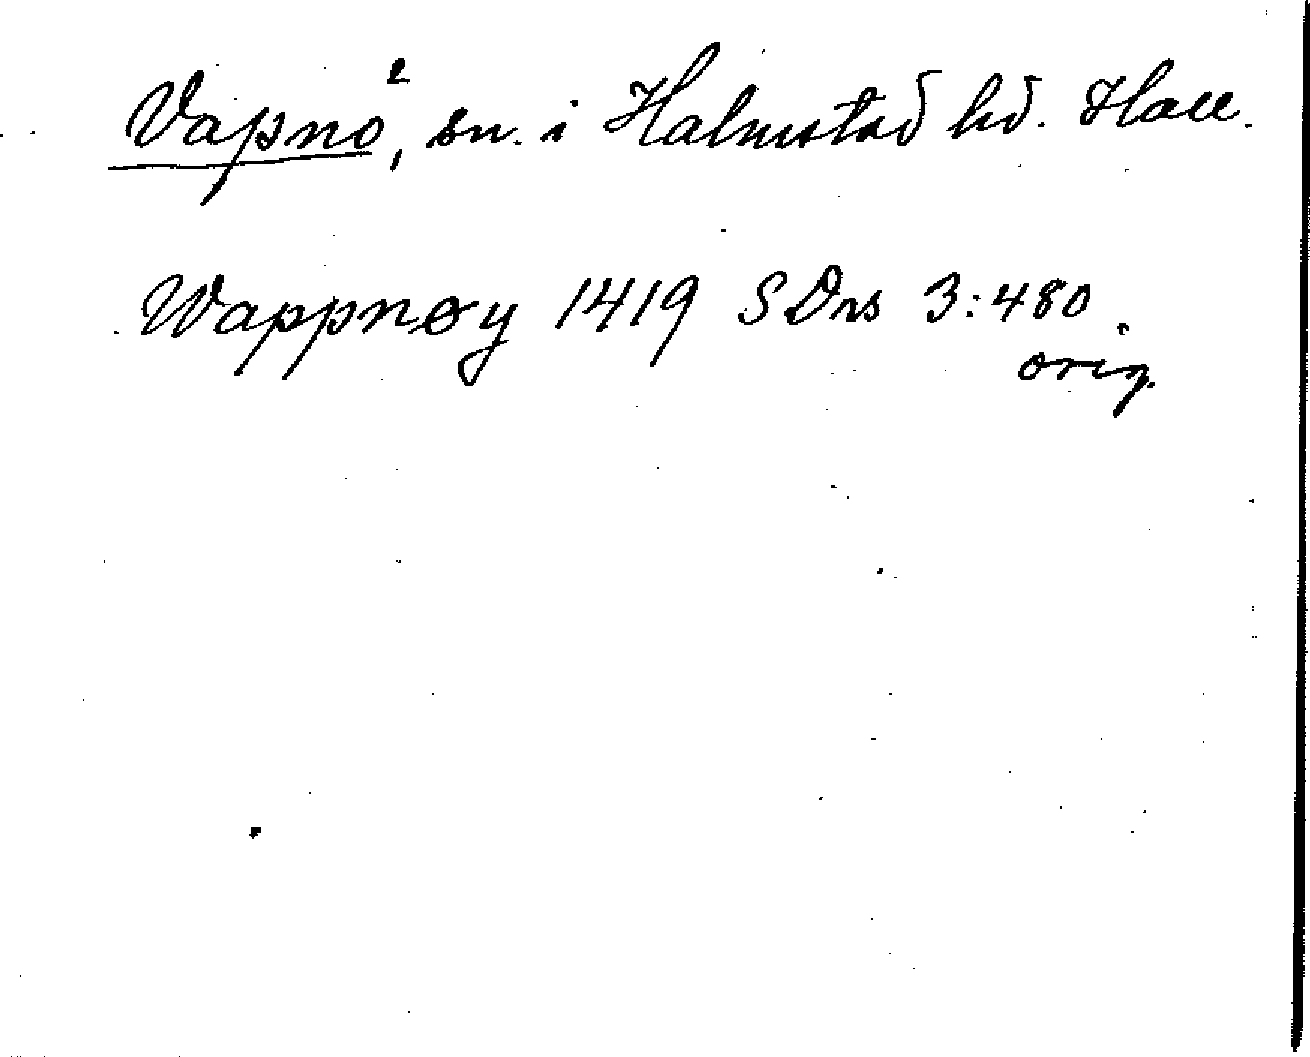 Vapnö, sn. i Halmstad hd. Hall.
Wappnøy 1419 SDns 3:480.
orig.